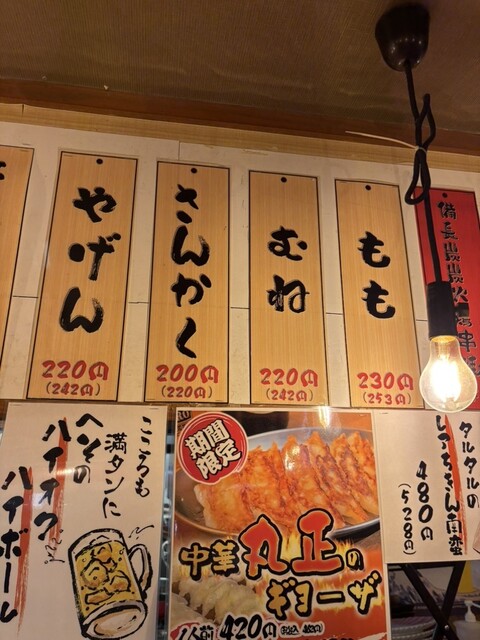 備長炭炭火
串焼
もも
230円
(253円)
むね
220円
(242円)
さんかく
200円
(220円)
やげん
220円
(242円)
タルタルの
480円
(528円)
期間
限定
中華丸正の
ギョーザ
1人前 420円
こころも
満タンに
へその
ハイオク
ハイボール